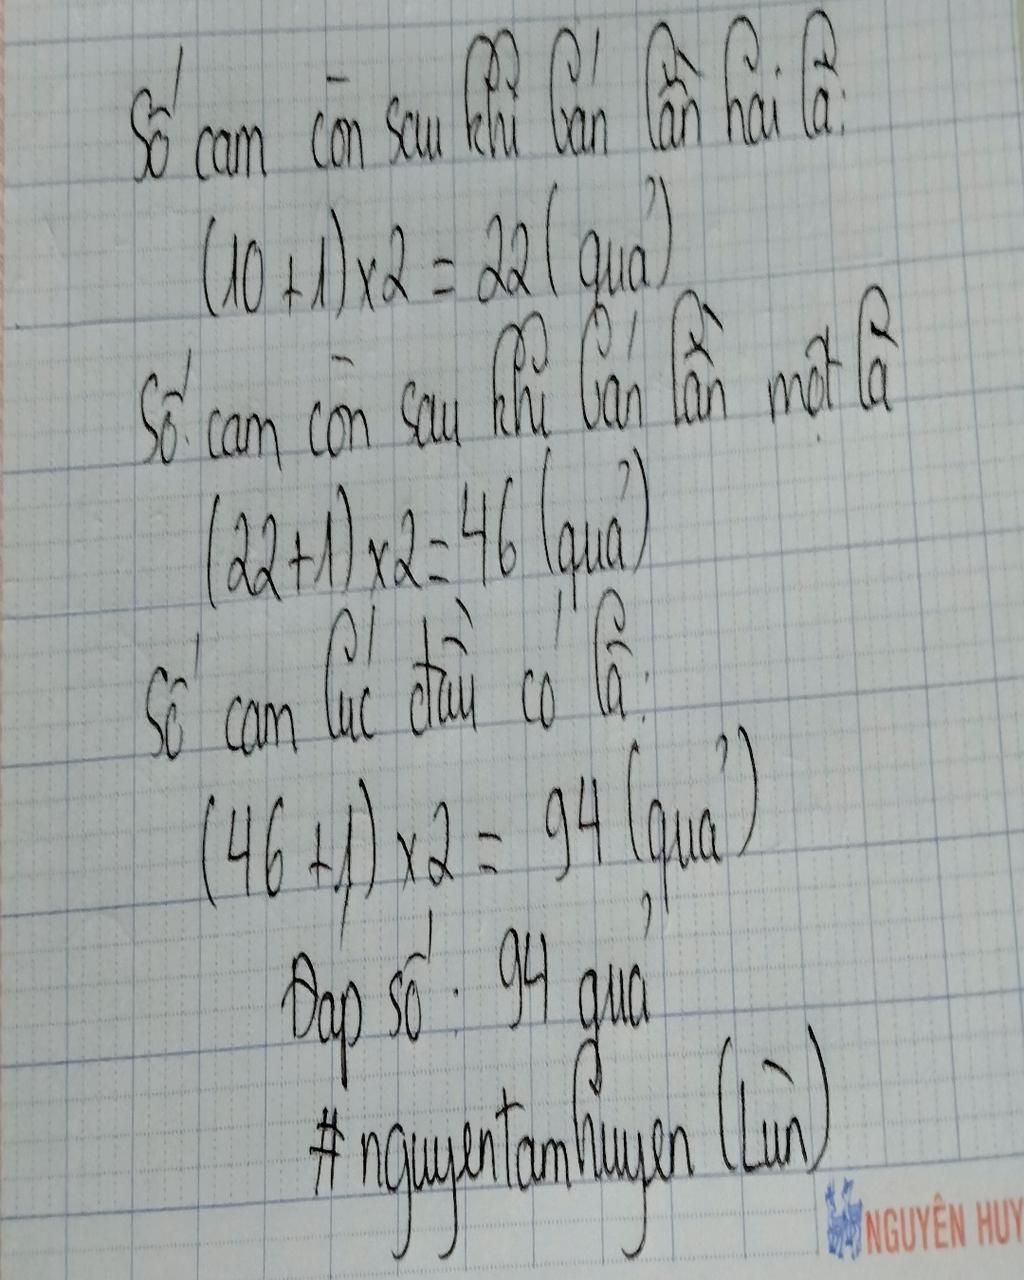 Số cam còn sau khi bán lần hai là:
(10+1)x2 = 22 (quả)
Số cam còn sau khi bán lần một là
(22+1)x2=46 (quả)
Số cam lúc đầu có là:
(46+1)x2 = 94 (quả)
Đáp số: 94 quả
#nguyentamhuyen (Lùn)
NGUYÊN HUY